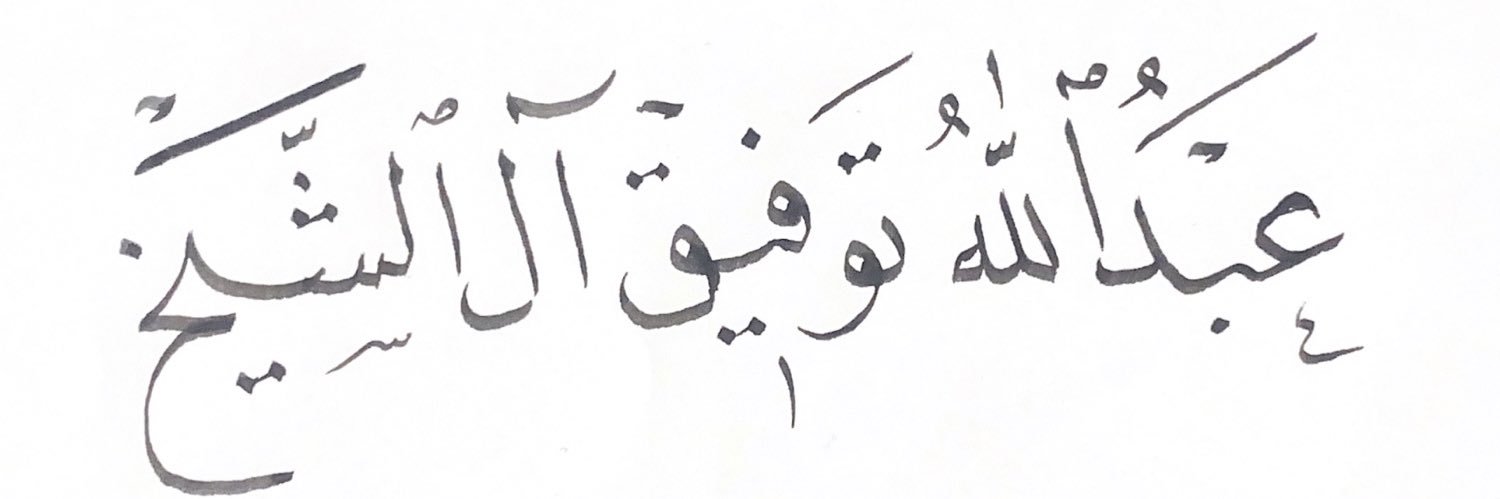 عَبْدُ ٱللّٰهُ تَوْفِيق آل ٱلشَّيْخ